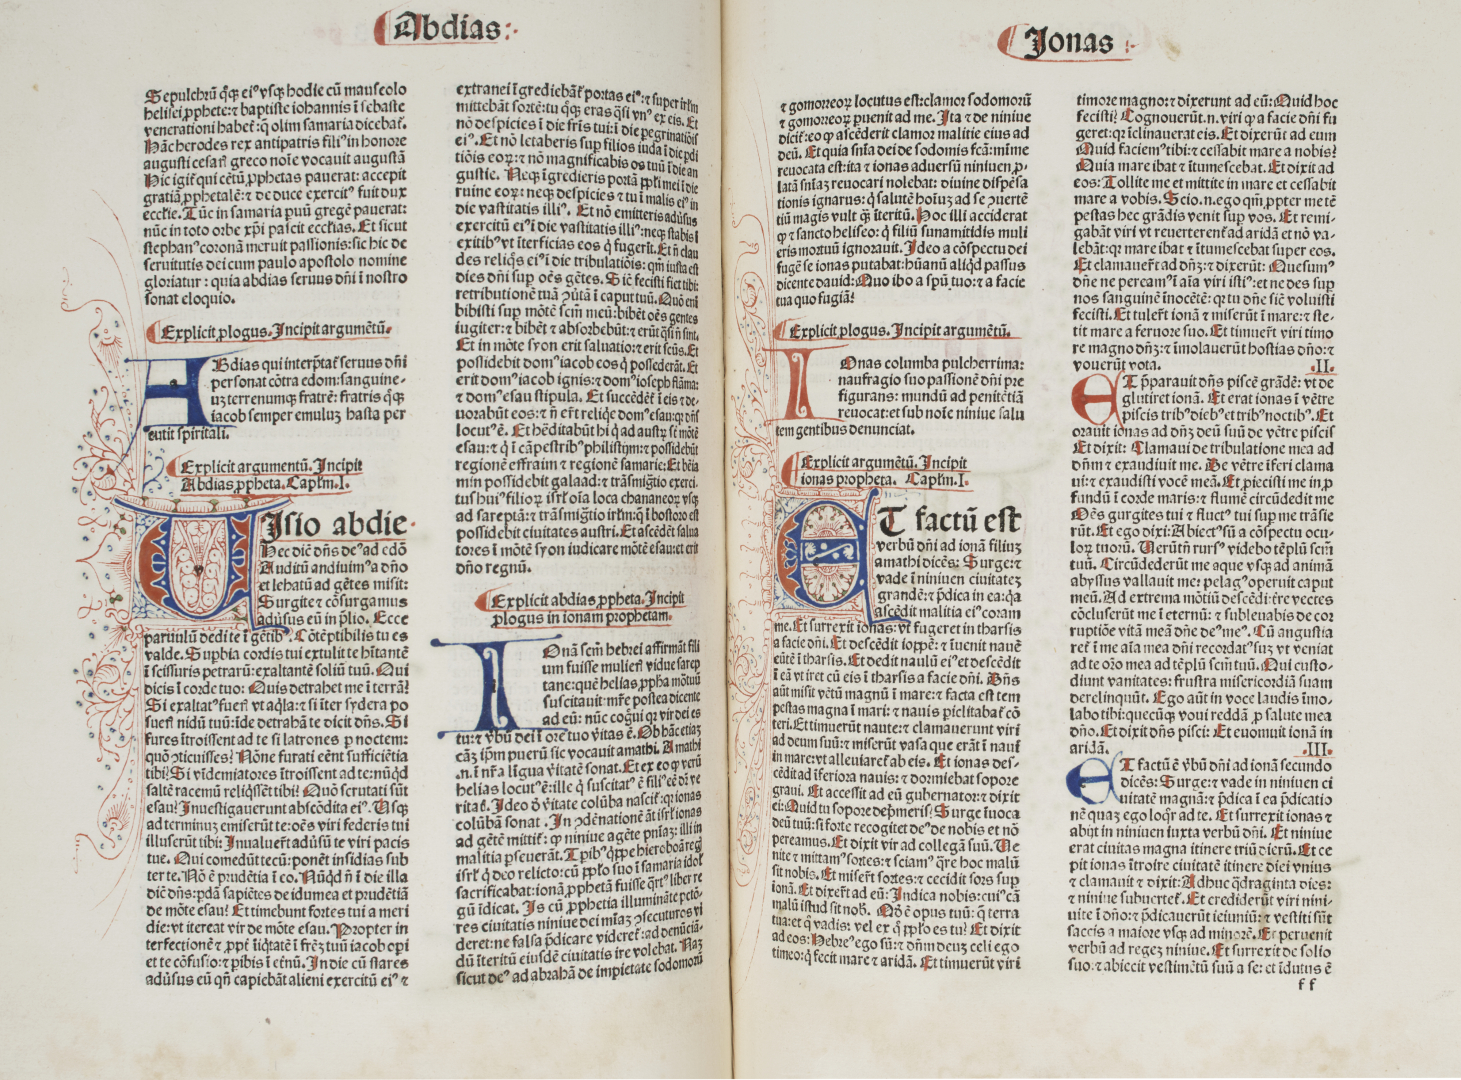 Abdias
Sepulchrū q̄ꝫ ei⁹ vsqꝫ hodie cū mauseolo
helisei ꝓphete: ⁊ baptiste iohannis ī sebaste
venerationi habet̄: q̄ olim samaria dicebat̄.
Hāc herodes rex antipatris fili⁹ in honore
augusti cesaꝝ greco noīe vocauit augustā
Hic igit̄ qui cētū ꝓphetas pauerat: accepit
gratiā ꝓphetalē: ⁊ de duce exercit⁹ fuit dux
eccłie. Tūc in samaria puū gregē pauerat:
nūc in toto orbe xp̄i pascit eccłias. Et sicut
stephan⁹ coronā meruit passionis: sic hic de
seruitutis dei cum paulo apostolo nomine
gloriatur: quia abdias seruus dn̄i ī nostro
sonat eloquio.
Explicit ꝓlogus. Incipit argumētū.
ABdias qui interp̄tat̄ seruus dn̄i
personat cōtra edom: sanguine-
uꝫ terrenumqꝫ fratrē: fratris q̄ꝫ
iacob semper emuluꝫ hasta per
cutit spiritali.
Explicit argumentū. Incipit
Abdias ꝓpheta. Capłm. I.
UIsio abdie
Hec dic̄ dn̄s de⁹ ad edō
Auditū audiuim⁹ a dn̄o
et lehatū ad gētes misit:
Surgite ⁊ cōsurgamus
aduersus eū in p̄lio. Ecce
paruulū dedi te ī gētib⁹. Cōtēptibilis tu es
valde. Supbia cordis tui extulit te hītantē
ī scissuris petrarū: exaltantē soliū tuū. Qui
dicis ī corde tuo: Quis detrahet me ī terrā?
Si exaltat⁹ fuer̄ vt aq̄la: ⁊ si īter sydera po
suer̄ nidū tuū: īde detrahā te dicit dn̄s. Si
fures ītroissent ad te si latrones ꝑ noctem:
quō ꝯticuisses? Nōne furati eēnt sufficiētia
tibi? Si vīdemiatores ītroissent ad te: nūq̄d
saltē racemū reliq̄ssēt tibi? Quō scrutati sūt
esau? Inuestigauerunt abscōdita ei⁹. Usqꝫ
ad terminuꝫ emiserūt te: oēs viri federis tui
illuserūt tibi: Inualuer̄t adūsū te viri pacis
tue. Qui comedūt tecū: ponēt insidias sub
ter te. Nō ē prudētia ī eo. Nūq̄d n̄ ī die illa
dic̄ dn̄s: ꝑdā sapiētes de idumea et prudētiā
de mōte esau? Et timebunt fortes tui a meri
die: vt itereat vir de mōte esau. Propter in
terfectionē ⁊ ꝓpt̄ īiq̄tatē ī frēꝫ tuū iacob opi
et te cōfusio: ⁊ pibis ī eēnū. In die cū stares
adūsus eū qn̄ capiebāt alieni exercitū ei⁹ ⁊
extranei īgrediebāt̄ portas ei⁹: ⁊ super irłm
mittebāt sortē: tu q̄ꝫ eras q̄si vn⁹ ex eis. Et
nō despicies ī die fr̄is tui: ī die pegrinatiōis
ei⁹. Et nō letaberis sup filios iuda ī die pdi
tiōis eoꝝ: ⁊ nō magnificabis os tuū ī die an
gustie. Neqꝫ īgredieris portā pp̄łi mei ī die
ruine eoꝝ: neqꝫ despicies ⁊ tu ī malis ei⁹ in
die vastitatis illi⁹. Et nō emitteris adūsus
exercitū ei⁹ ī die vastitatis illi⁹: neqꝫ stabis ī
exitib⁹ vt īterficias eos q̄ fugerīt. Et n̄ clau
des reliq̄s ei⁹ ī die tribulatiōis: qm̄ iuxta est
dies dn̄i sup oēs gētes. Sic̄ fecisti fiet tibi:
retributionē tuā ꝯūtā ī caput tuū. Quō em̄
bibisti sup mōtē sc̄m meū: bibēt oēs gentes
iugiter: ⁊ bibēt ⁊ absorbebūt: ⁊ erūt q̄si n̄ sint.
Et in mōte syon erit saluatio: ⁊ erit sc̄us. Et
possidebit dom⁹ iacob eos q̄ possederāt. Et
erit dom⁹ iacob ignis: ⁊ dom⁹ ioseph flāma:
⁊ dom⁹ esau stipula. Et succēdēt ī eis ⁊ de-
uorabūt eos: ⁊ n̄ er̄t reliq̄e dom⁹ esau: qꝛ dn̄s
locut⁹ ē. Et hēditabūt hi q̄ ad austꝝ st̄ mōtē
esau: ⁊ q̄ ī cāpestrib⁹ philistijm: ⁊ possidebūt
regionē effraim ⁊ regionē samarie: Et bēia
min possidebit galaad: ⁊ trāsmiḡtio exerci.
tus hui⁹ filioꝝ isrł oīa loca chananeoꝝ vsqꝫ
ad sareptā: ⁊ trāsmiḡtio irłm: q̄ ī bosforo est
possidebit ciuitates austri. Et ascēdēt salua
tores ī mōtē syon iudicare mōtē esau: et erit
dn̄o regnū.
Explicit abdias ꝓpheta. Incipit
ꝓlogus in ionam prophetam.
IOnā sc̄m hebrei affirmāt fili
um fuisse mulier̄ vidue sarep
tane: quē helias ꝓpha mōtuū
suscitauit: mr̄e postea dicente
ad eū: nūc coḡui qꝛ vir dei es
tu: ⁊ v̄bū dei ī ore tuo v̄itas ē. Ob hāc etiaꝫ
cāꝫ ip̄m puerū sic vocauit amathi. Amathi
.n. ī nr̄a līgua v̄itatē sonat. Et ex eo qꝛ verū
helias locut⁹ ē: ille q̄ suscitat⁹ ē fili⁹ eē dr̄ ve
ritat̄. Ideo d̄ v̄itate colūba nascit̄: qꝛ ionas
colūbā sonat. In ꝯdēnationē āt isrł ionas
ad gētē mittit̄: qꝛ niniue agēte pn̄iaꝫ: illi in
malitia ꝑseuerāt. Tꝑib⁹ q̄ppe hieroboā reḡ
isrł q̄ deo relicto: cū pp̄ło suo ī samaria idoł
sacrificabat: ionā ꝓphetā fuisse q̄rt⁹ liber re
gū īdicat. Is cū ꝓphetia illumināte petō-
res ciuitatis niniue dei mīaꝫ ꝯsecuturos vi
deret: ne falsa p̄dicare videret̄: ad denūcia-
dū īteritū eiusdē ciuitatis ire volebat. Naꝫ
sicut de⁹ ad abrahā de impietate sodomorū
Ionas
⁊ gomorreoꝝ locutus est: clamor sodomorū
⁊ gomorreoꝝ puenit ad me. Ita ⁊ de niniue
dicit̄: eo qꝫ ascēderit clamor malitie eius ad
deū. Et quia sn̄ia dei de sodomis fcā: mīme
reuocata est: ita ⁊ ionas aduersū niniuen ꝓ-
latā sn̄iaꝫ reuocari nolebat: diuine dispēsa
tionis ignarus: q̄ salutē hoīuꝫ ad se ꝯuertē
tiū magis vult q̄ꝫ īteritū. Hoc illi acciderat
qꝫ ⁊ sancto heliseo: q̄ filiū sunamitidis muli
eris mortuū ignorauit. Ideo a cōspectu dei
fugēse ionas putabat: hūanū aliq̄d passus
dicente dauid: Quo ibo a spū tuo: ⁊ a facie
tua quo fugiā?
Explicit ꝓlogus. Incipit argumētū.
IOnas columba pulcherrima:
naufragio suo passionē dn̄i pre
figurans: mundū ad penitētiā
reuocat: et sub noīe niniue salu
tem gentibus denunciat.
Explicit argumētū. Incipit
ionas propheta. Capłm. I.
ET factū est
verbū dn̄i ad ionā filiuꝫ
amathi dicēs: Surge: ⁊
vade ī niniuen ciuitateꝫ
grandē: ⁊ p̄dica in ea: qꝛ
ascēdit malitia ei⁹ coram
me. Et surrexit ionas: vt fugeret in tharsis
a facie dn̄i. Et descēdit ioppē: ⁊ īuenit nauē
eūtē ī tharsis. Et dedit naulū ei⁹ et descēdit
ī eā vt iret cū eis ī tharsis a facie dn̄i. Dn̄s
aūt misit vētū magnū ī mare: ⁊ facta est tem
pestas magna ī mari: ⁊ nauis ꝑiclitabat̄ cō
teri. Et timuerūt naute: ⁊ clamauerunt viri
ad deum suū: ⁊ miserūt vasa que erāt ī naui
in mare: vt alleuiaret̄ ab eis. Et ionas des-
cēdit ad īferiora nauis: ⁊ dormiebat sopore
graui. Et accessit ad eū gubernator: ⁊ dixit
ei: Quid tu sopore dep̄meris? Surge īuoca
deū tuū: si forte recogitet de⁹ de nobis et nō
pereamus. Et dixit vir ad collegā suū. Ue
nite ⁊ mittam⁹ sortes: ⁊ sciam⁹ q̄re hoc malū
sit nobis. Et miser̄t sortes: ⁊ cecidit sors sup
ionā. Et dixer̄t ad eū: Indica nobis: cui⁹ cā
malū istud sit nob̄. Qd̄ ē opus tuū: q̄ terra
tua: et q̄ vadis: vel ex q̄ pp̄ło es tu? Et dixit
ad eos: Hebre⁹ ego sū: ⁊ dn̄m deuꝫ celi ego
timeo: q̄ fecit mare ⁊ aridā. Et timuerūt viri
timore magno: ⁊ dixerunt ad eū: Quid hoc
fecisti? Cognouerūt .n. viri qꝫ a facie dn̄i fu
geret: qꝛ īclinauerat eis. Et dixerūt ad eum
Quid faciem⁹ tibi: ⁊ cessabit mare a nobis?
Quia mare ibat ⁊ ītumescebat. Et dixit ad
eos: Tollite me et mittite in mare et cessabit
mare a vobis. Scio .n. ego qm̄ ꝓpter me tē
pestas hec grādis venit sup vos. Et remi-
gabāt viri vt reuerterent̄ ad aridā et nō va-
lebāt: qꝛ mare ibat ⁊ ītumescebat super eos.
Et clamauer̄t ad dn̄ꝫ: ⁊ dixerūt: Quesum⁹
dn̄e ne peream⁹ ī aīa viri isti⁹: et ne des sup
nos sanguinē īnocētē: qꝛ tu dn̄e sic̄ voluisti
fecisti. Et tuler̄t ionā ⁊ miserūt ī mare: ⁊ ste-
tit mare a feruore suo. Et timuer̄t viri timo
re magno dn̄ꝫ: ⁊ īmolauerūt hostias dn̄o: ⁊
vouerūt vota. .II.
ET p̄parauit dn̄s piscē grādē: vt de
glutiret ionā. Et erat ionas ī vētre
piscis trib⁹ dieb⁹ et trib⁹ noctib⁹. Et
orauit ionas ad dn̄ꝫ deū suū de vētre piscis
Et dixit: Clamaui de tribulatione mea ad
dn̄m ⁊ exaudiuit me. De vētre īferi clama
ui: ⁊ exaudisti vocē meā. Et ꝓiecisti me in ꝓ
fundū ī corde maris: ⁊ flumē circūdedit me
Oēs gurgites tui ⁊ fluct⁹ tui sup me trāsie
rūt. Et ego dixi: Abiect⁹ sū a cōspectu ocu-
loꝝ tuorū. Uerūtn̄ rurs⁹ videbo tēplū sc̄m
tuū. Circūdederūt me aque vsqꝫ ad animā
abyssus vallauit me: pelag⁹ operuit caput
meū. Ad extrema mōtiū descēdi: t̄re vectes
cōcluserūt me ī eternū: ⁊ subleuabis de cor
ruptiōe vitā meā dn̄e de⁹ me⁹. Cū angustia
ret̄ ī me aīa mea dn̄i recordat⁹ suꝫ vt veniat
ad te or̄o mea ad tēplū sc̄m tuū. Qui custo-
diunt vanitates: frustra misericordiā suam
derelinquūt. Ego aūt in voce laudis īmo-
labo tibi: quecūqꝫ voui reddā ꝓ salute mea
dn̄o. Et dixit dn̄s pisci: Et euomuit ionā in
aridā. .III.
ET factū ē v̄bū dn̄i ad ionā secundo
dicēs: Surge: ⁊ vade in niniuen ci
uitatē magnā: ⁊ p̄dica ī ea p̄dicatio
nē quaꝫ ego loq̄r ad te. Et surrexit ionas ⁊
abijt in niniuen iuxta verbū dn̄i. Et niniue
erat ciuitas magna itinere triū dierū. Et ce
pit ionas ītroire ciuitatē itinere diei vnius
⁊ clamauit ⁊ dixit: Adhuc q̄draginta dies:
⁊ niniue subuertet̄. Et crediderūt viri nini-
uite ī dn̄o: ⁊ p̄dicauerūt ieiuniū: ⁊ vestiti sūt
saccis a maiore vsqꝫ ad minorē. Et peruenit
verbū ad regeꝫ niniue. Et surrexit de solio
suo: ⁊ abiecit vestimētū suū a se: et īdutus ē
f f